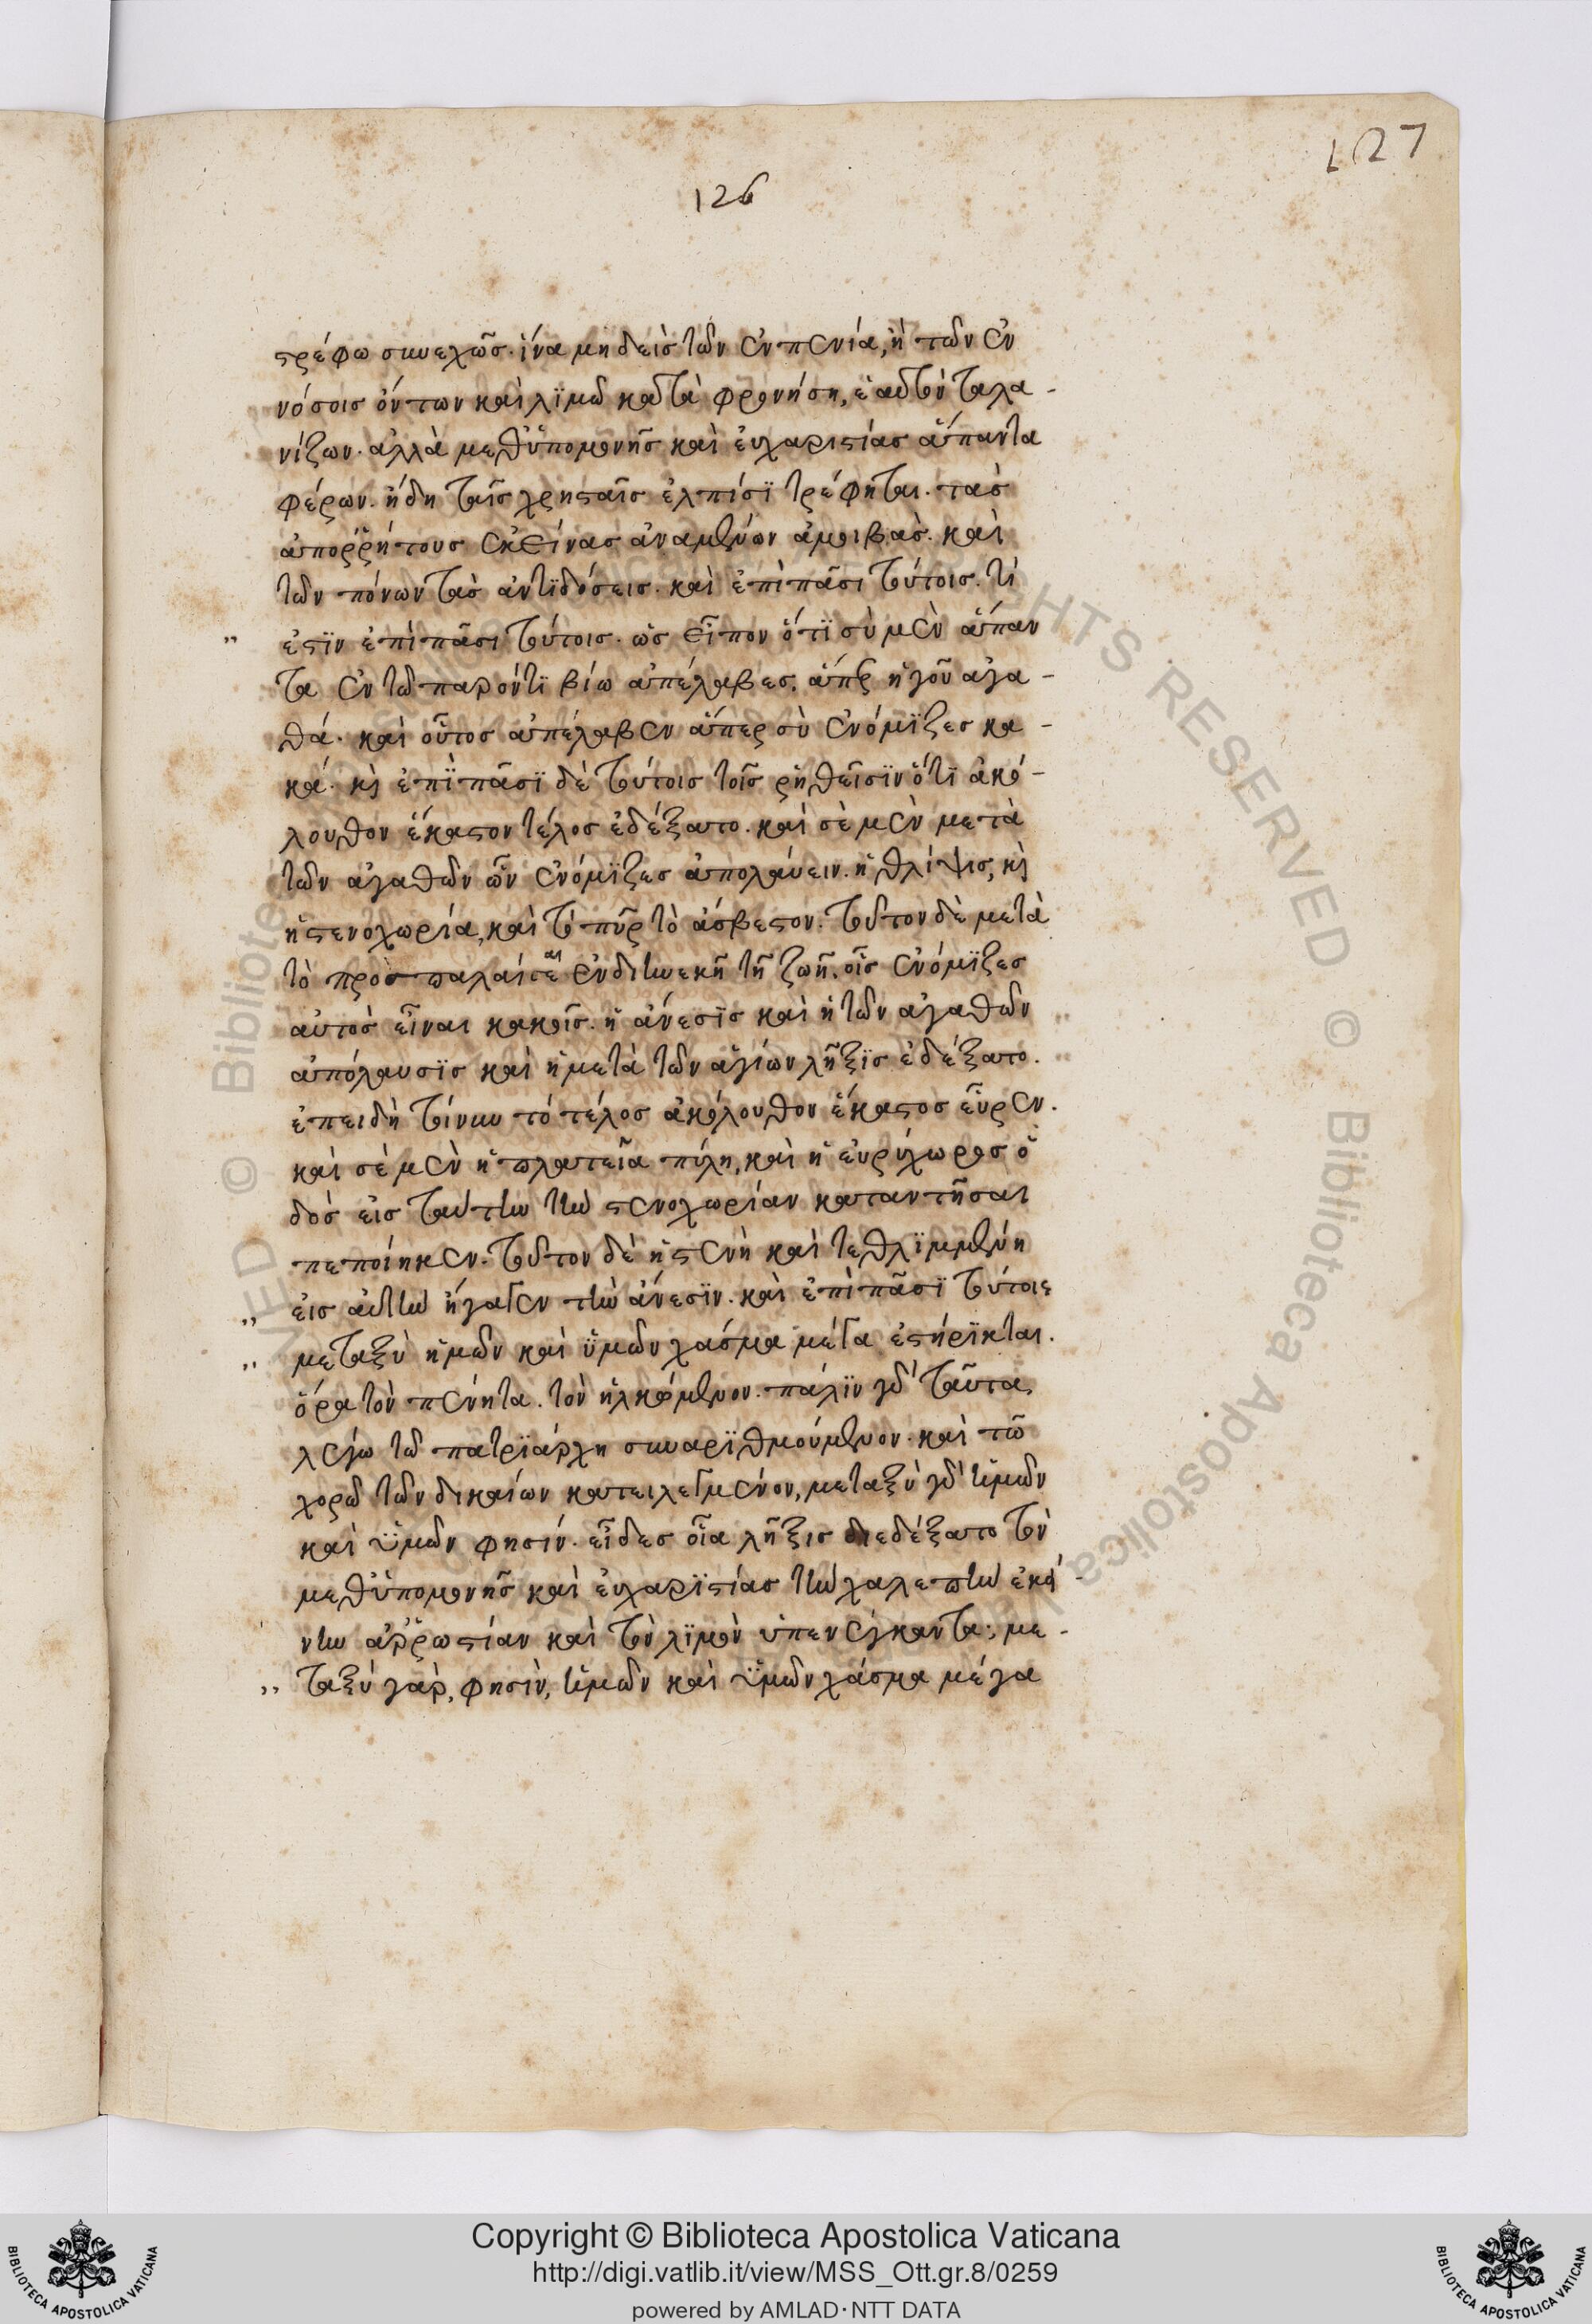 127
126
στρέφω συνεχῶς. ἵνα μηδεὶς τῶν ἐν πενία, ἢ τῶν ἐν
νόσοις ὄντων καὶ λϊμῶ καθ' ἑαυτὸν ταλα-
νίζων. ἀλλὰ μεθ ὑπομονῆς καὶ ἐυχαριστίας ἅπαντα
φέρων. ἤδη ταῖς χρησταῖς ἐλπίσϊ τρέφηται. τὰς
ἀπορρήτους ἐκείνας ἀναμένων ἀμοιβὰς. καὶ
τῶν πόνων τὰς ἀντϊδόσεις. καὶ ἐπὶ πᾶσι τούτοις. τί
„ ἐστϊν ἐπὶ πᾶσι τούτοις. ὡς εἶπον ὅτϊ σὺ μὲν ἅπαν
τα ἐν τῶ παρόντϊ βίω ἀπέλαβες. ἅπερ ἡγοῦ ἀγα-
θά. καὶ οὗτος ἀπέλαβεν ἅπερ σὺ ἐνόμϊζες κα-
κά. κὶ ἐπὶ πᾶσϊ δὲ τούτοις τοῖς ῥηθεῖσϊν ὅτϊ ἀκό-
λουθον ἕκαστον τέλος ἐδέξατο. καὶ σὲ μὲν μετὰ
τῶν ἀγαθῶν ὧν ἐνόμϊζες ἀπολαύειν. ἡ θλίψις, κὶ
ἡ στενοχωρία, καὶ τὸ πῦρ τὸ ἄσβεστον. τοῦτον δὲ μετὰ
τὸ προσπαλαίσαι ἐν διηνεκῆ τῆ ζωῆ. οἷς ἐνόμϊζες
αὐτὸς εἶναι κακοῖς. ἡ ἄνεσϊς καὶ ἡ τῶν ἀγαθῶν „
ἀπόλαυσϊς καὶ ἡ μετὰ τῶν ἁγίων λῆξϊς ἐδέξατο. „
ἐπειδὴ τοίνυν τό τέλος ἀκόλουθον ἕκαστος εὗρεν.
καὶ σὲ μὲν ἡ πλατεῖα πύλη, καὶ ἡ ἐυρύχωρος ὁ
δὸς εἰς ταύτην τὴν στενοχωρίαν καταντῆσαι
πεποίηκεν. τοῦτον δὲ ἡ στενὴ καὶ τεθλϊμμένη
„ εἰς ἀυτὴν ἤγαγεν τὴν ἄνεσϊν. καὶ ἐπὶ πᾶσϊ τούτοις
„ μεταξὺ ἡμῶν καὶ ὑμῶν χάσμα μέγα ἐστήρϊκται.
ὅρα τὸν πένητα. τὸν ἡλκωμένον. πάλϊν γὰρ ταῦτα
λέγω τῶ πατρϊάρχη συναρϊθμούμενον. καὶ τῶ
χορῶ τῶν δικαίων κατειλεγμένον, μεταξὺ γὰρ ἡμῶν
καὶ ὑμῶν φησίν. εἶδες οἵα λῆξις διεδέξατο τὸν
μεθ ὑπομονῆς καὶ ἐυχαρϊστίας τὴν χαλεπὴν ἐκεί-
νην ἀρρωστίαν καὶ τὸν λϊμὸν ὑπενέγκαντα; με-
„ ταξύ γὰρ, φησὶν, ἡμῶν καὶ ὑμῶν χάσμα μέγα
Copyright © Biblioteca Apostolica Vaticana
http://digi.vatlib.it/view/MSS_Ott.gr.8/0259
powered by AMLAD·NTT DATA